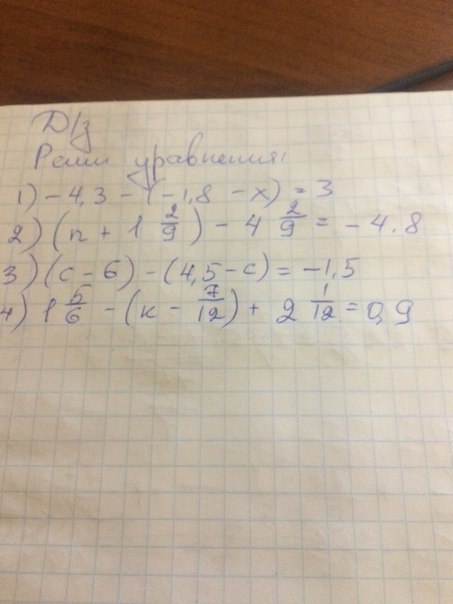 Д/з
Реши уравнения:
1) - 4,3 - (-1,8 - x) = 3
2) (n + 1 2/9) - 4 2/9 = - 4.8
3) (c - 6) - (4,5 - c) = -1,5
4) 1 5/6 - (к - 7/12) + 2 1/12 = 0,9